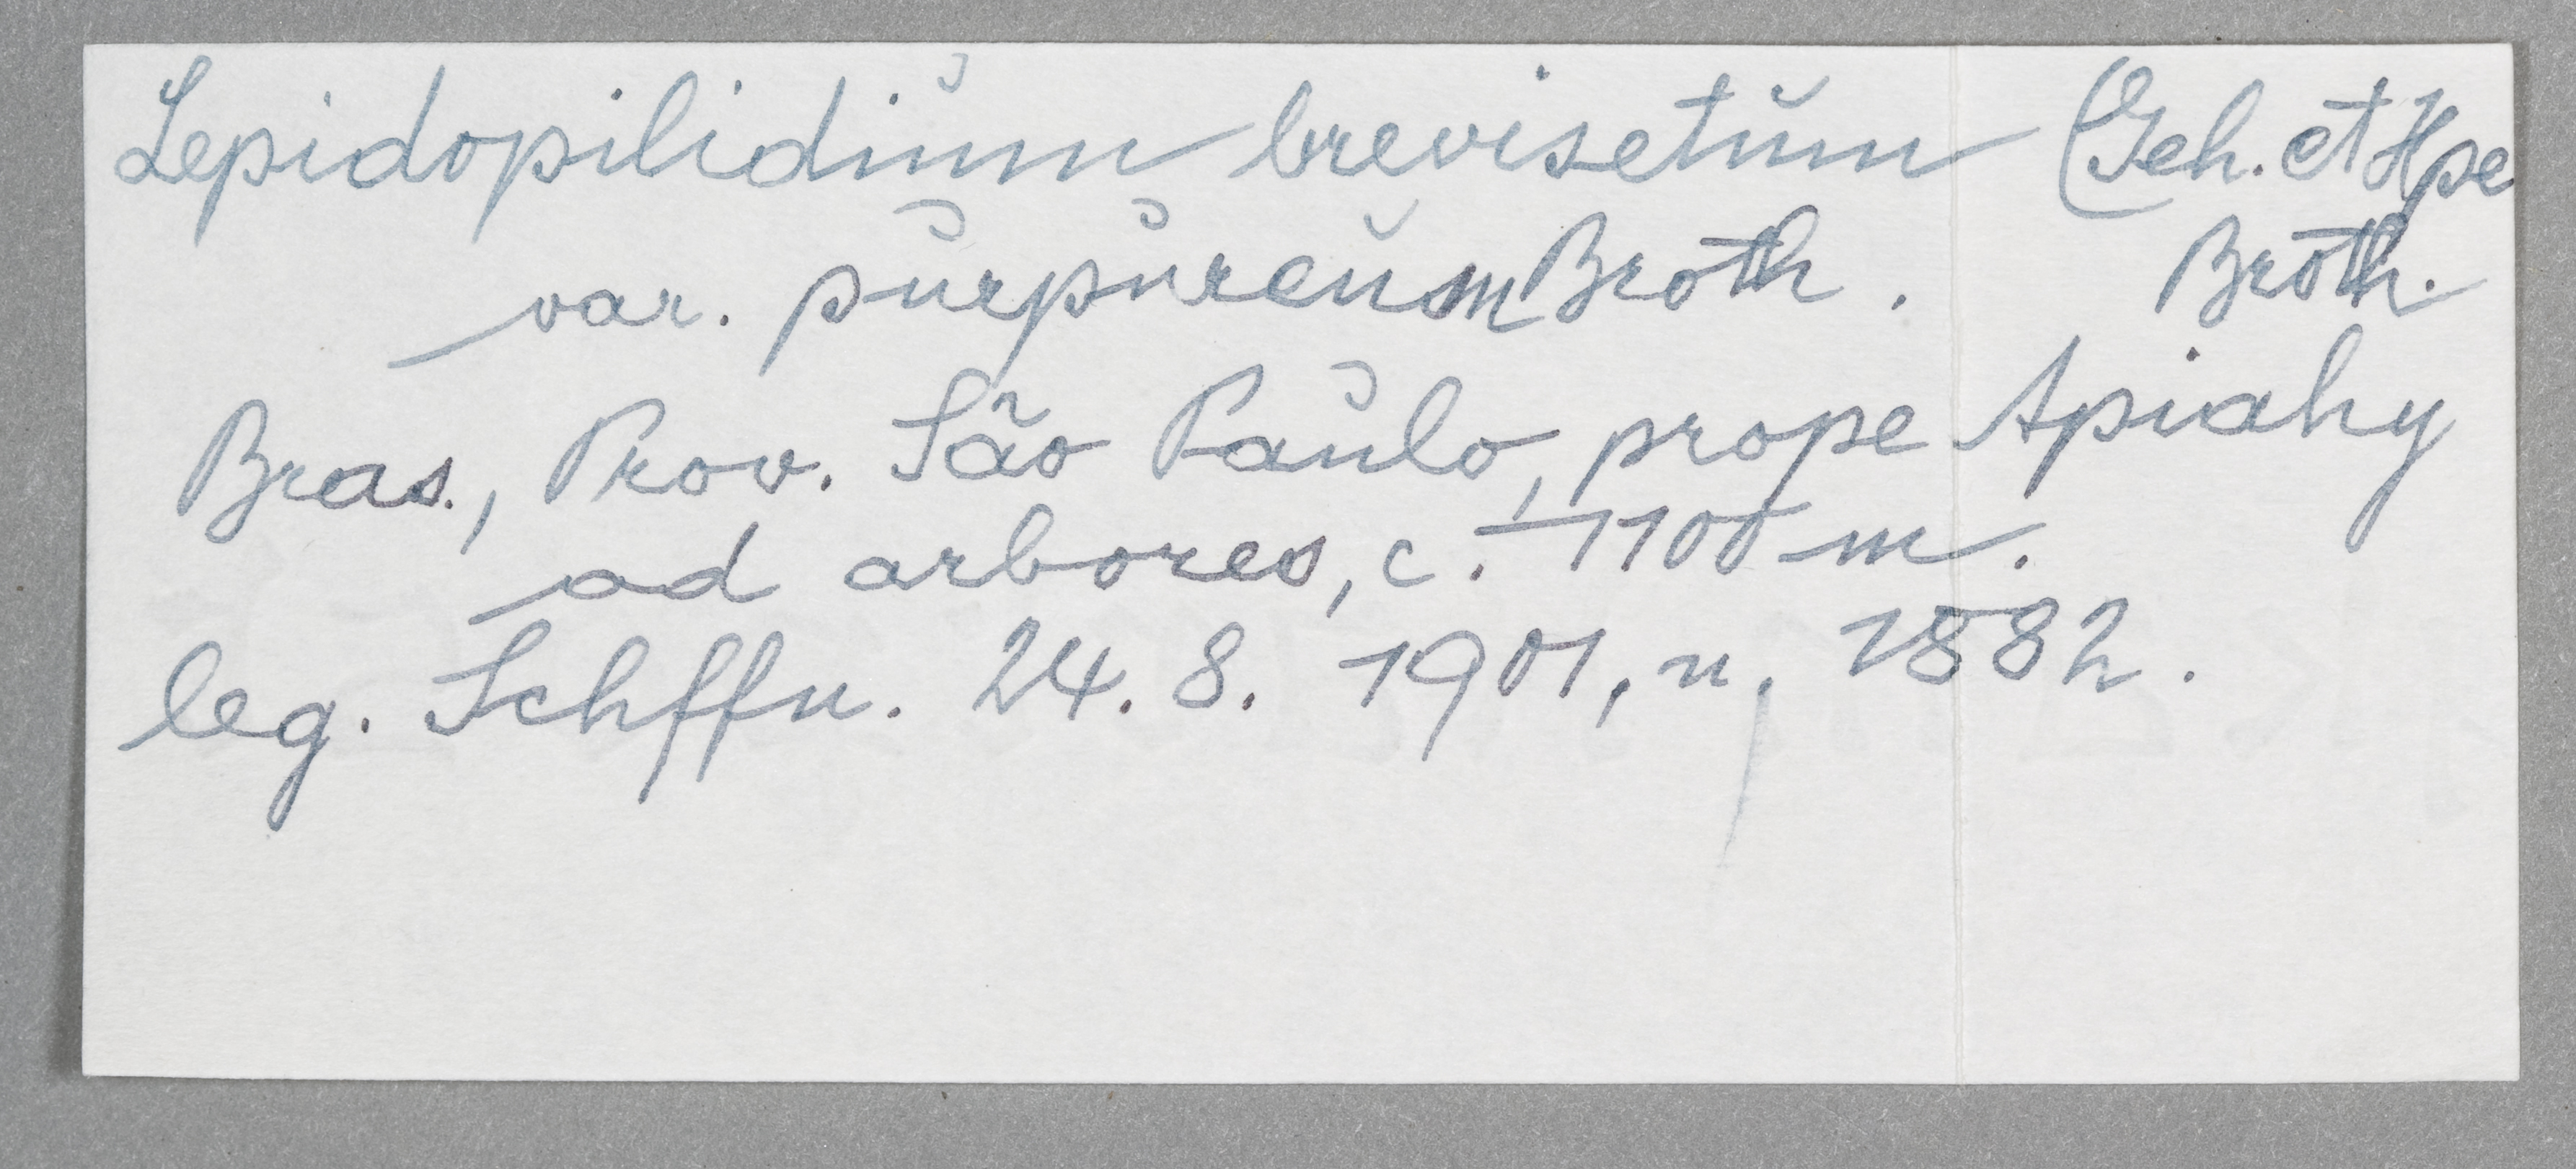 Lepidopilidium brevisetum (Geh. et Hpe
Broth.
var. purpureum Broth.
Bras., Prov. São Paulo, prope Apiahy
ad arbores, c. 1100 m.
leg. Schffn. 24. 8. 1901, n, 1882.